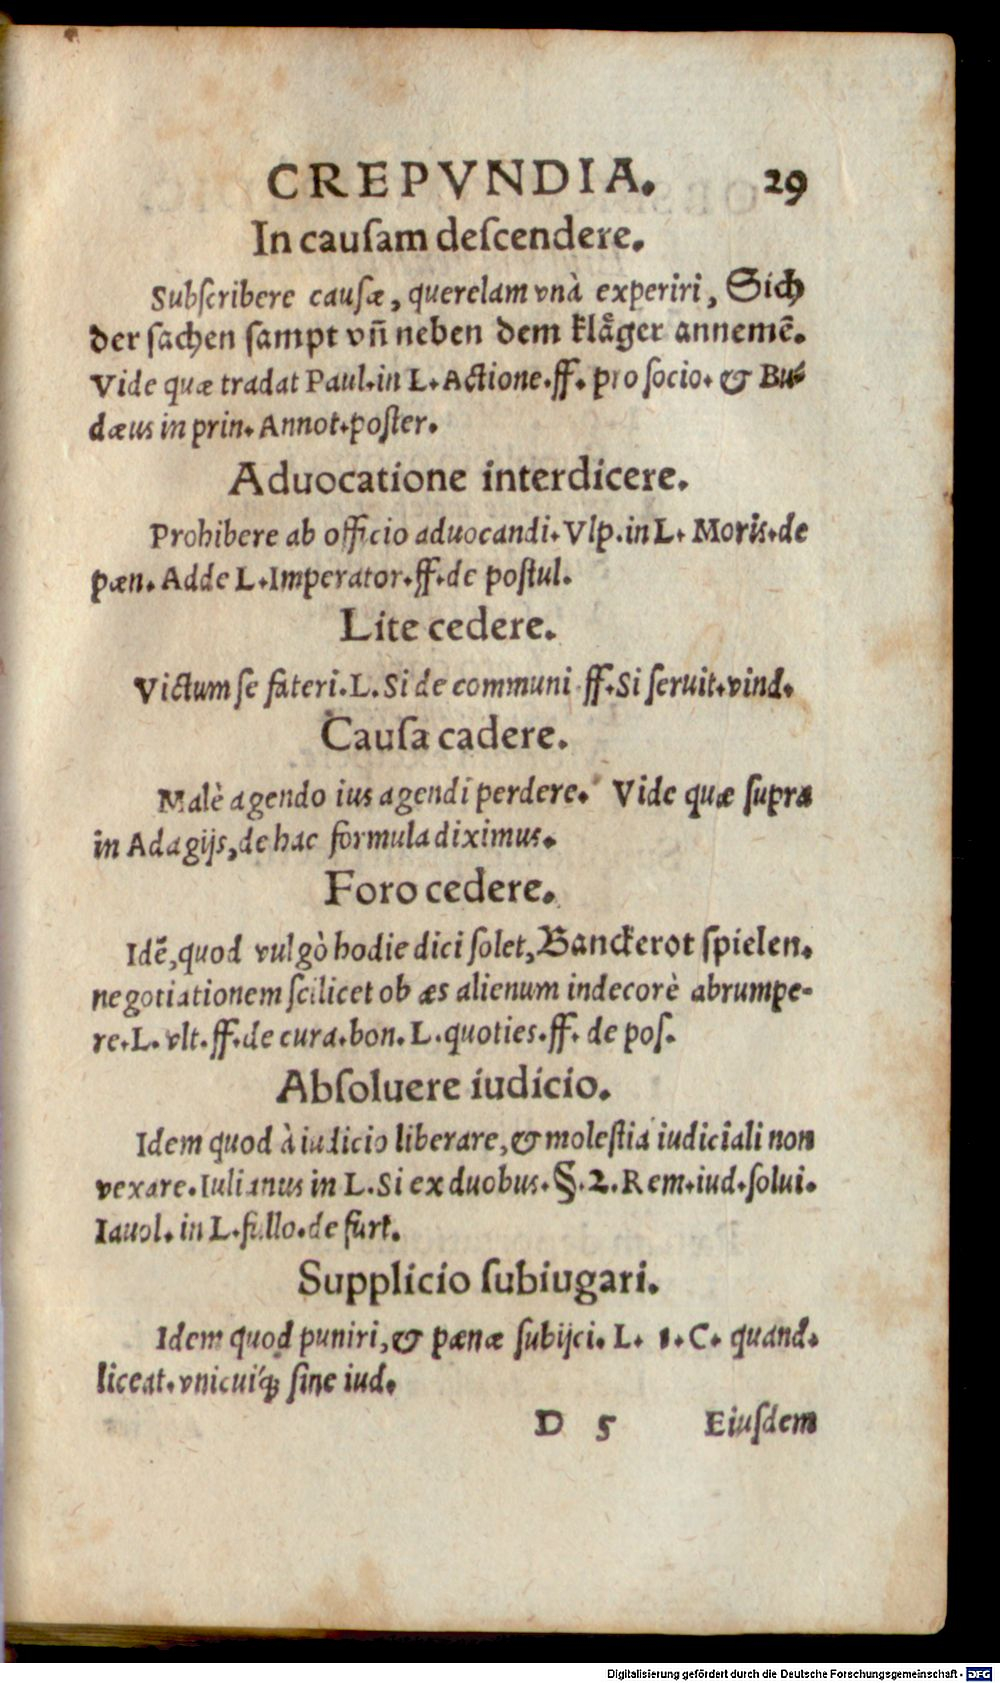 CREPVNDIA. 29
In cauſam deſcendere.
Subſcribere cauſæ, querelam vnà experiri, Sich
der ſachen ſampt vñ neben dem klaͤger annemē.
Vide quæ tradat Paul. in L. Actione. ff. pro ſocio. & Bu-
dæus in prin. Annot. poſter.
Aduocatione interdicere.
Prohibere ab officio aduocandi. Vlp. in L. Moris. de
pæn. Adde L. Imperator. ff. de poſtul.
Lite cedere.
Victum ſe fateri. L. Si de communi ff. Si ſeruit. vind.
Cauſa cadere.
Malè agendo ius agendi perdere. Vide quæ ſupra
in Adagijs, de hac formula diximus.
Foro cedere.
Idē, quod vulgò hodie dici ſolet, Banckerot ſpielen.
negotiationem ſcilicet ob æs alienum indecorè abrumpe-
re. L. vlt. ff. de cura. bon. L. quoties. ff. de poſ.
Abſoluere iudicio.
Idem quod à iudicio liberare, & moleſtia iudiciali non
vexare. Iulianus in L. Si ex duobus. §. 2. Rem. iud. ſolui.
Iauol. in L. fullo. de furt.
Supplicio ſubiugari.
Idem quod puniri, & pænæ ſubijci. L. 1. C. quand.
liceat. vnicuiq́; ſine iud.
D 5 Eiuſdem
Digitalisierung gefördert durch die Deutsche Forschungsgemeinschaft - DFG